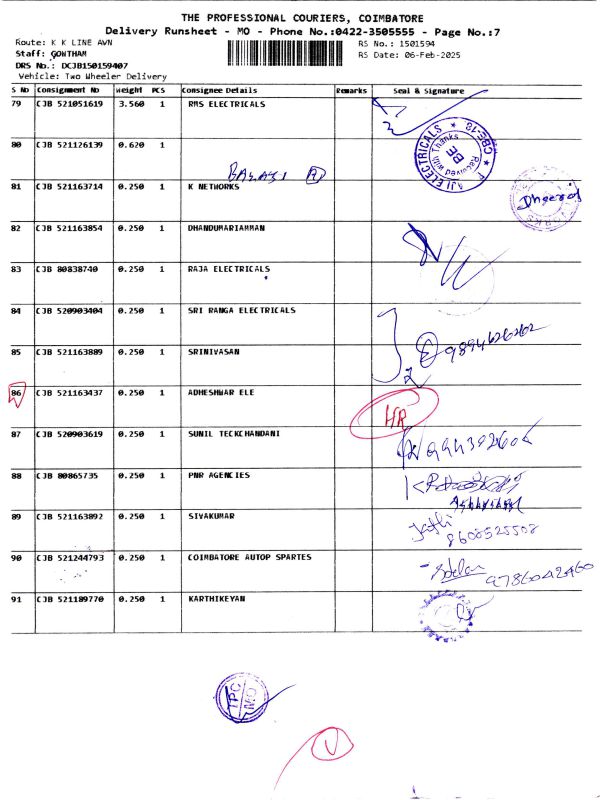 THE PROFESSIONAL COURIERS, COIMBATORE
Delivery Runsheet - MO - Phone No.:0422-3505555 - Page No.:7
Route: K K LINE AWN
RS No.: 1501594
Staff: GOWTHAM
RS Date: 06-Feb-2025
DRS No.: DCJB150159407
Vehicle: Two Wheeler Delivery
S No Consignment No Weight PCS Consignee Details Remarks Seal & Signature
79 CJB 521051619 3.560 1 RMS ELECTRICALS
80 CJB 521126139 0.620 1
BALAJI
AJI ELECTRICALS * CBE-18 *
Received with Thanks
81 CJB 521163714 0.250 1 K NETWORKS
Dheeraj
82 CJB 521163854 0.250 1 DHANDUMARIAMMAN
83 CJB 80838740 0.250 1 RAJA ELECTRICALS
84 CJB 520903404 0.250 1 SRI RANGA ELECTRICALS
9894626262
85 CJB 521163889 0.250 1 SRINIVASAN
86 CJB 521163437 0.250 1 ADHESHWAR ELE
HR
87 CJB 520903619 0.250 1 SUNIL TECKCHANDANI
88 CJB 80865735 0.250 1 PNR AGENCIES
89 CJB 521163892 0.250 1 SIVAKUMAR
8608525508
90 CJB 521244793 0.250 1 COIMBATORE AUTOP SPARTES
9786042460
91 CJB 521189770 0.250 1 KARTHIKEYAN
TPC
MO